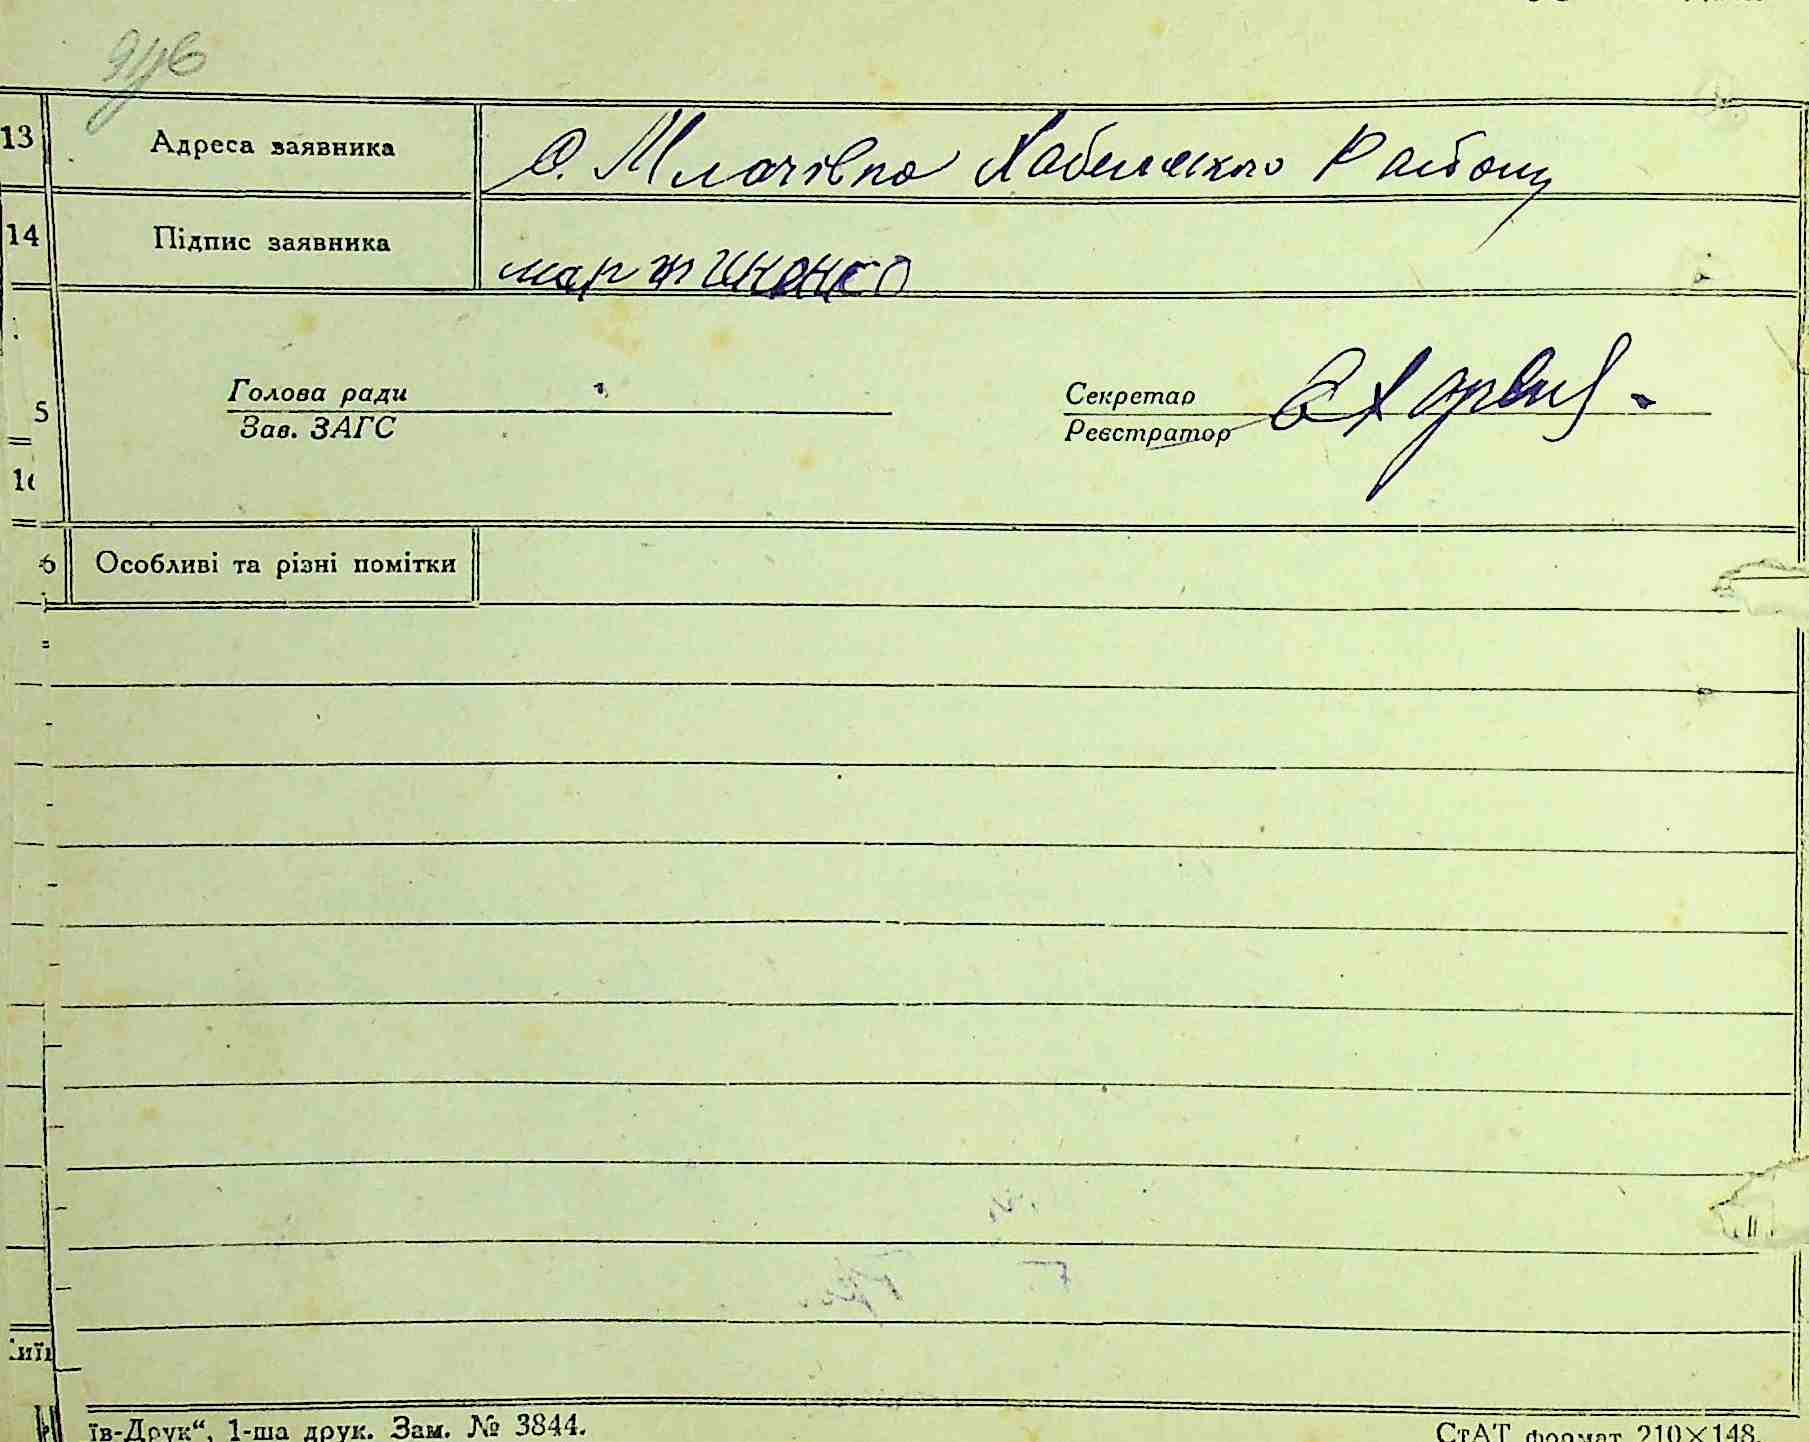 13 Адреса заявника С. Млачівка Хабенского Району
14 Підпис заявника мартиненко
Голова ради Секретар
Зав. ЗАГС Реєстратор
5
16
6 Особливі та різні помітки
їв-Друк“, 1-ша друк. Зам. № 3844. СтАТ формат 210×148.